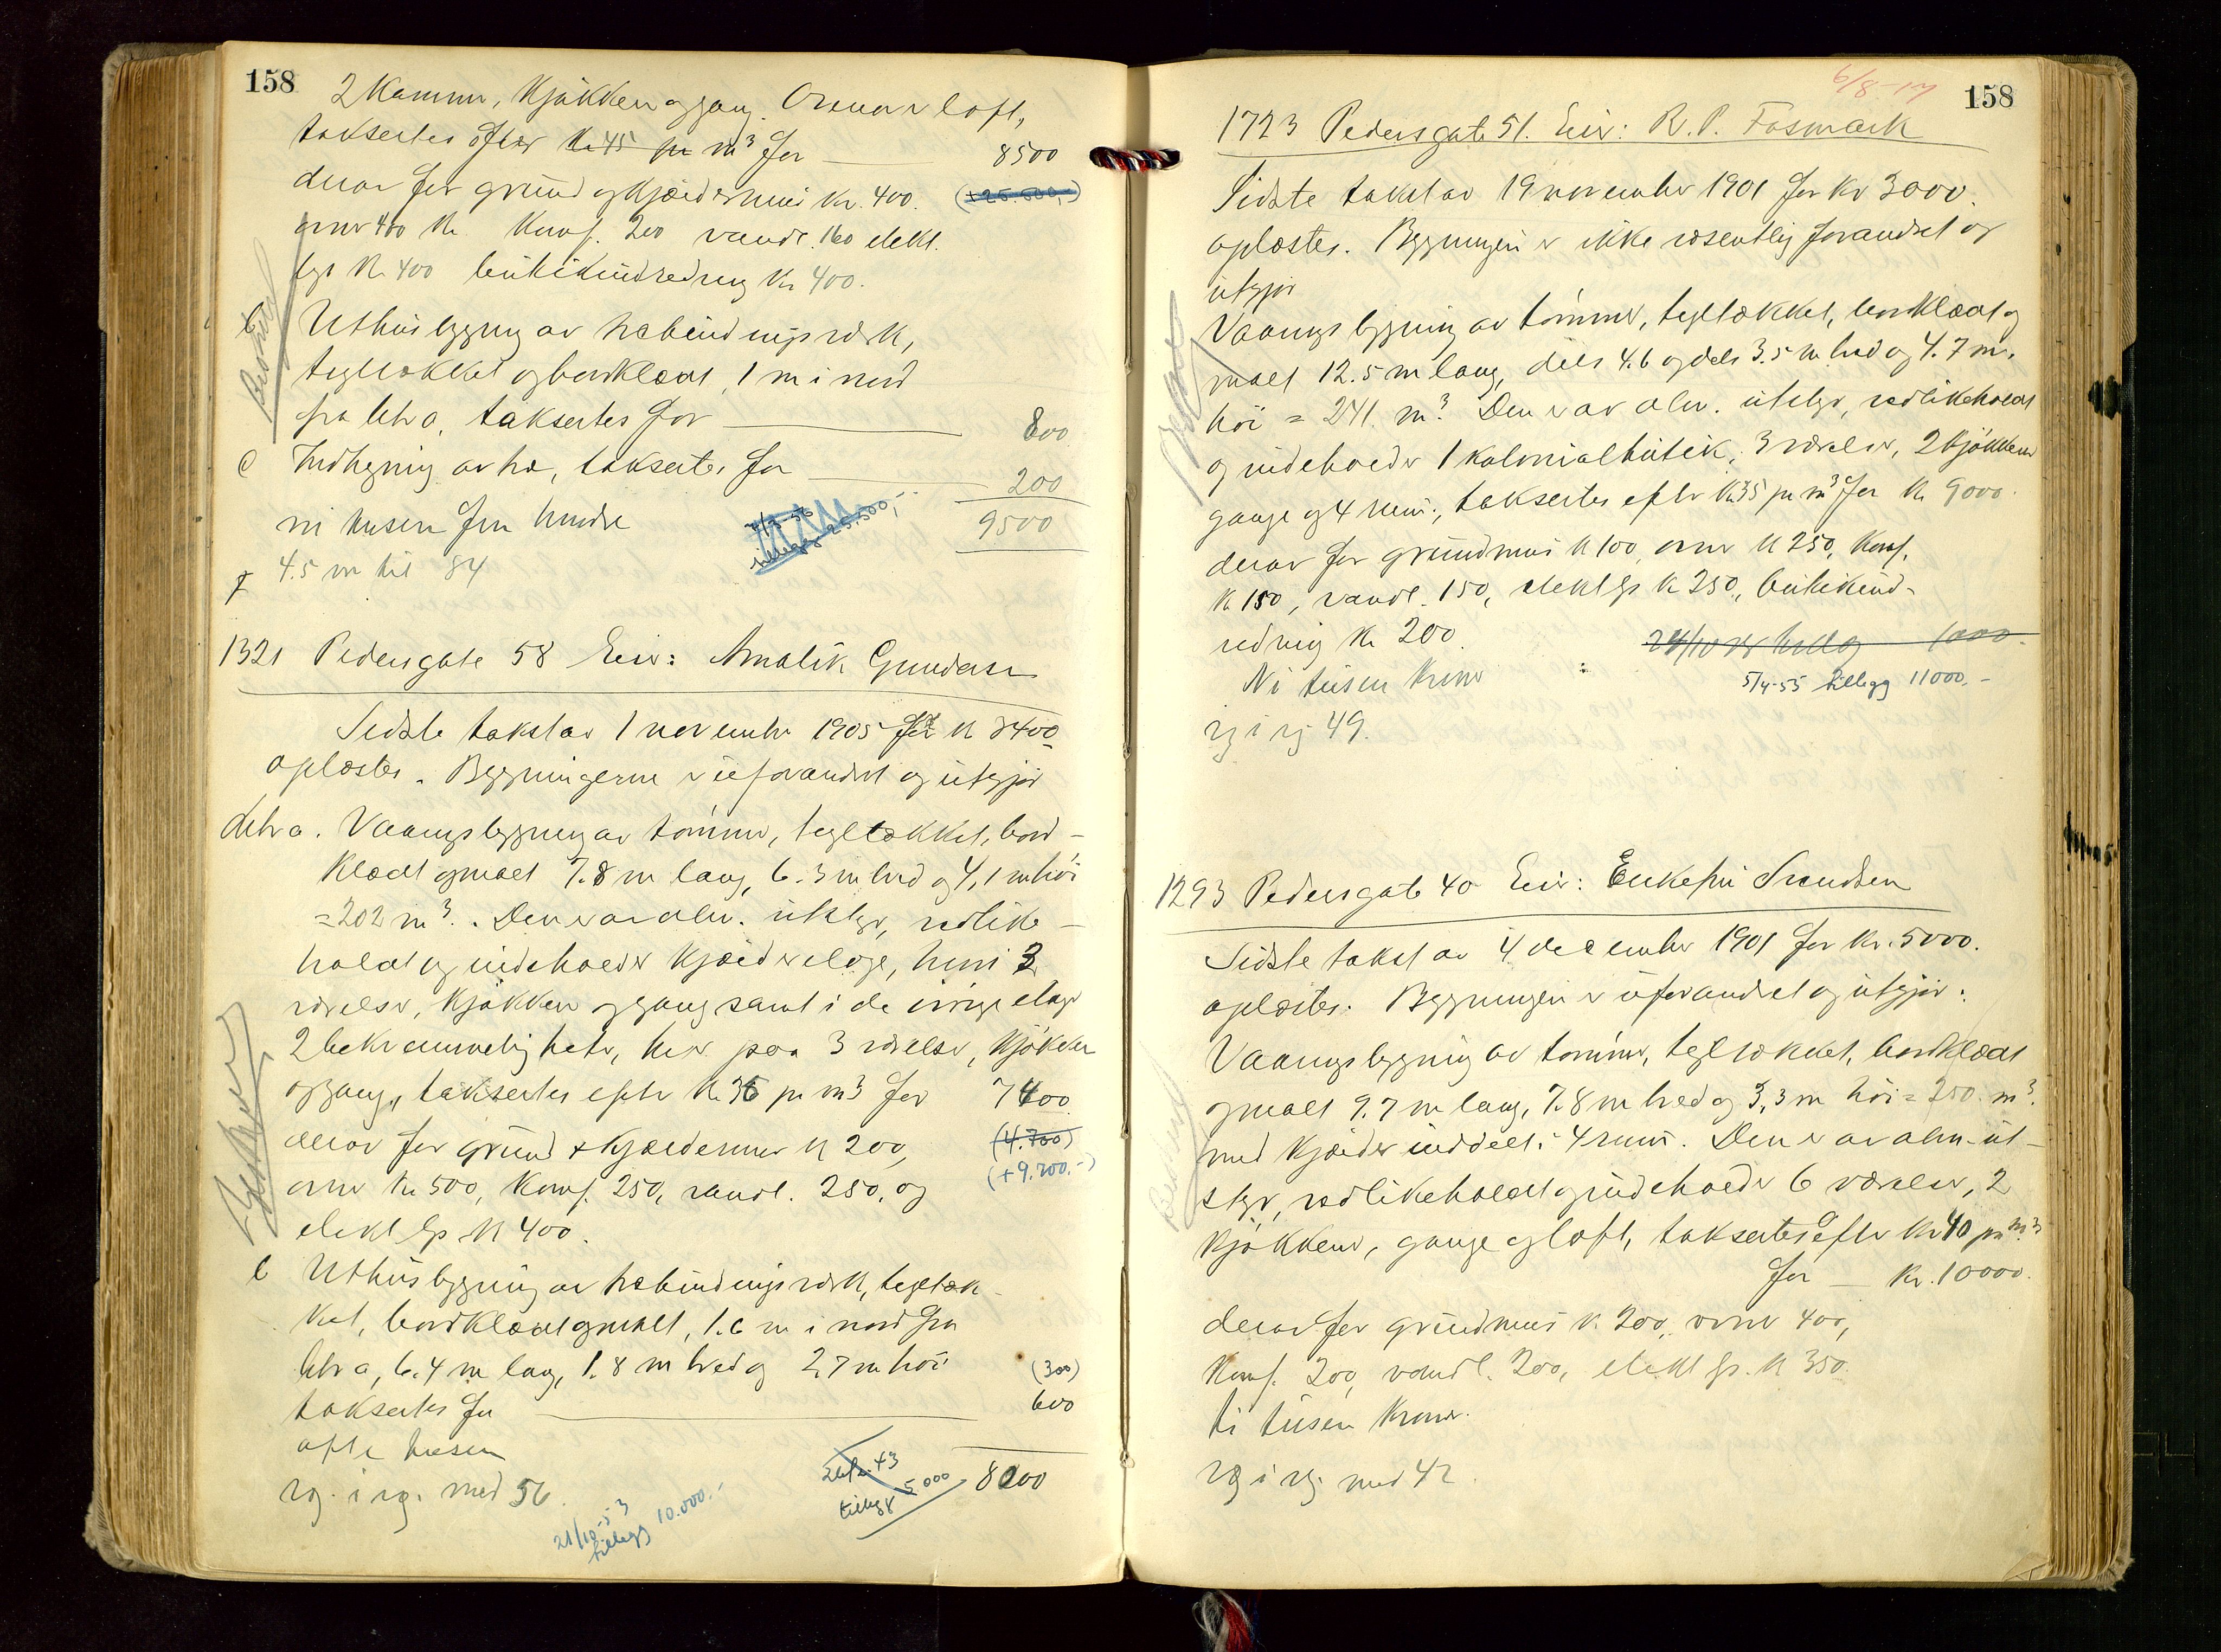 158
2 Kammer, Kjøkken og gang. Ovenover loft,
taksertes efter Kr 45 pr m³ for 8500
derav for grund og Kjældermur kr. 400. (+25.500,-)
ovner 400 Kr Komf. 200 vandl. 160 elekt.
lys Kr 400 butikindredning Kr 400.
b Uthusbygning av træbindingsverk,
teglækket og bordklædt, 1 m i nord
fra litr a, taksertes for 800
c Indhegning av træ, taksertes for 200
ni tusen fem hundre 9500
tillegg 25.500,-
4.5 m til 84
1321 Pedersgate 58 Eier: Amalie Gundersen
Sidste takst av 1 november 1905 for Kr 3400
oplæstes. Bygningerne er uforandret og utgjør
Litr a. Vaaningsbygning av tømmer, teglækket, bord-
klædt og malt 7.8 m lang, 6.3 m bred og 4,1 m høi
= 202 m³. Den er av alm. utstyr, vedlike-
holdt og indeholder Kjælderetage, hvori 3
værelser, Kjøkken og gang samt i de øvrige etager
2 bekvemmeligheter, hver paa 3 værelser, Kjøkken
og gang, taksertes efter Kr. 36 pr m³ for 7400
derav for grund + Kjældermur Kr 200, (4.700)
ovner Kr 500, Komf. 250, vandl. 250, og (+9.200.-)
elekt lys Kr 400.
b Uthusbygning av træbindingsverk, teglæk-
ket, bordklædt og malt, 1.6 m i nord fra
litr a, 6.4 m lang, 1.8 m bred og 2,7 m høi (300)
taksertes for 600
otte tusen 8000
vg. i vg. med 56.
tillegg 5000
21/10-53
tillegg 10.000.-
6/8-17
158
1723 Pedersgate 51. Eier: R. P. Fosmark
Sidste takst av 19 november 1901 for Kr 3000.
oplæstes. Bygningen er ikke væsentlig forandret og
utgjør
Vaaningsbygning av tømmer, teglækket, bordklædt og
malt 12.5 m lang, dels 4.6 og dels 3.5 m bred og 4.7 m.
høi = 241 m³. Den er av alm. utstyr, vedlikeholdt
og indeholder 1 kolonialbutik, 3 værelser, 2 kjøkkener
gange og 4 rum, taksertes efter Kr 35 pr m³ for Kr 9000.
derav for grundmur Kr 100, ovner Kr 250, Komf.
Kr 150, vandl. 150, elekt lys Kr 250, butikind-
redning Kr 200. tillæg 1000
Ni tusen Kroner : 5/4-55 tillegg 11000.-
vg i vg 49.
1293 Pedersgate 40 Eier: Enkefru Svendsen
Sidste takst av 4 december 1901 for Kr. 5000.
oplæstes. Bygningen er uforandret og utgjør:
Vaaningsbygning av tømmer, teglækket, bordklædt
og malt 9.7 m lang, 7.8 m bred og 3,3 m høi = 250. m³.
med Kjælder inddelt i 4 rum. Den er av alm. ut-
styr, vedlikeholdt og indeholder 6 værelser, 2
Kjøkkener, gange og loft, taksertes efter Kr 40 pr m³
for Kr. 10000.
derav for grundmur Kr 200, ovner 400,
Komf. 200, vandl. 200, elekt lys. Kr 350.
ti tusen Kroner.
vg i vg. med 42.